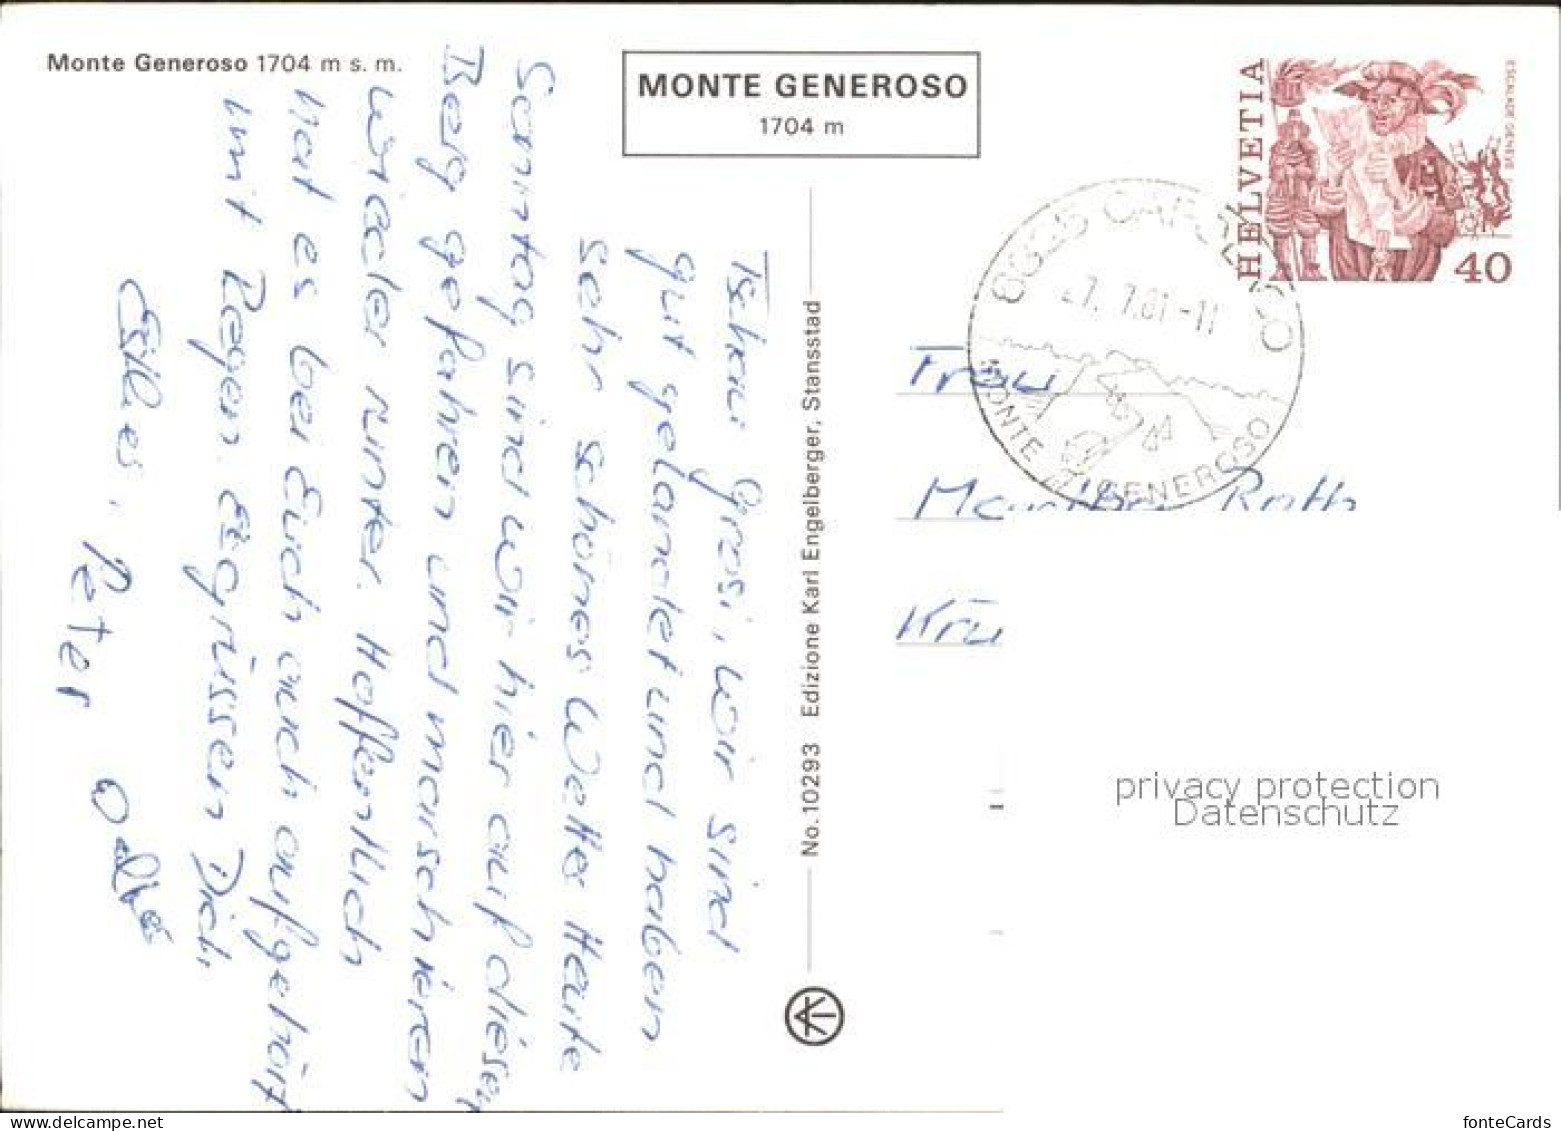 Monte Generoso 1704 m s. m.
MONTE GENEROSO
1704 m
Tschau Grosi, wir sind
gut gelandet und haben
sehr schönes Wetter Heute
Sonntag sind wir hier auf diesen
Berg gefahren und marschieren
wieder runter. Hoffentlich
hat es bei Euch auch aufgehört
mit Regen. Es grüssen Dich
Peter
No. 10293 Edizione Karl Engelberger, Stansstad
HELVETIA
ESCALADE DE GENÈVE
40
MONTE GENEROSO
7.81-11
Frau
Roth
Krü
privacy protection
Datenschutz
delcampe.net
fonteCards